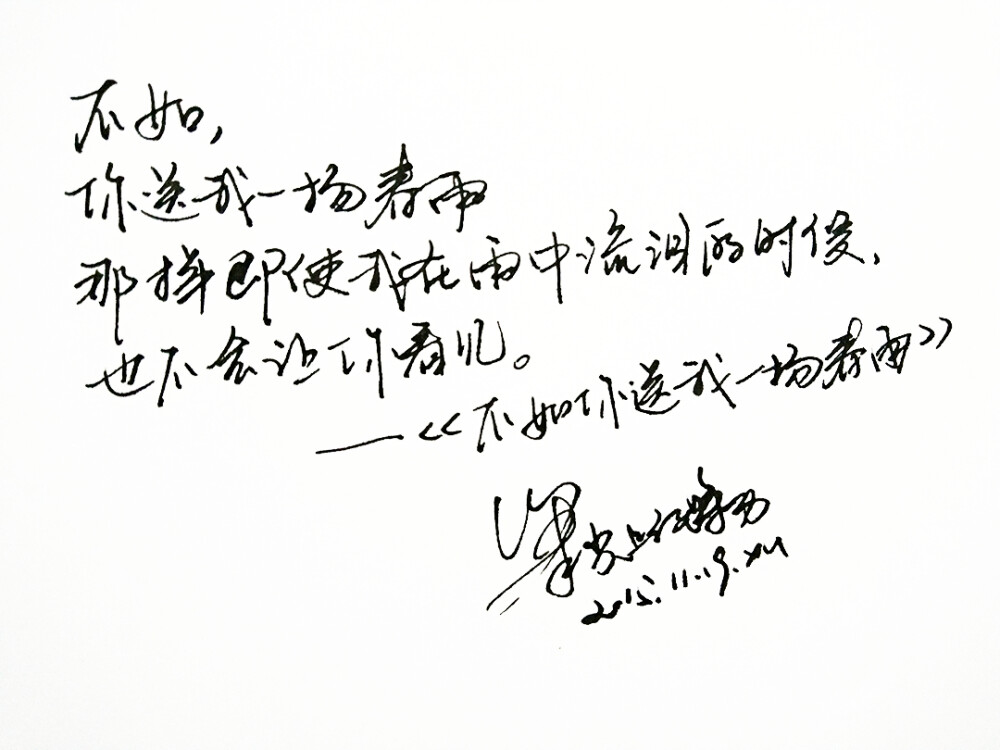 不如，
你送我一场春雨
那样即使我在雨中流泪的时候，
也不会让你看见。
——《不如你送我一场春雨》
2015.11.19.